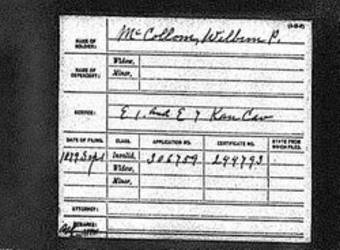 NAME OF SOLDIER: McCollom, Wilburn P.
NAME OF DEPENDENT: Widow,
Minor,
SERVICE: E 1, and E 7 Kan Cav
DATE OF FILING. CLASS. APPLICATION NO. CERTIFICATE NO. STATE FROM WHICH FILED.
1879 Sept Invalid, 306709 244793
Widow,
Minor,
ATTORNEY:
REMARKS: